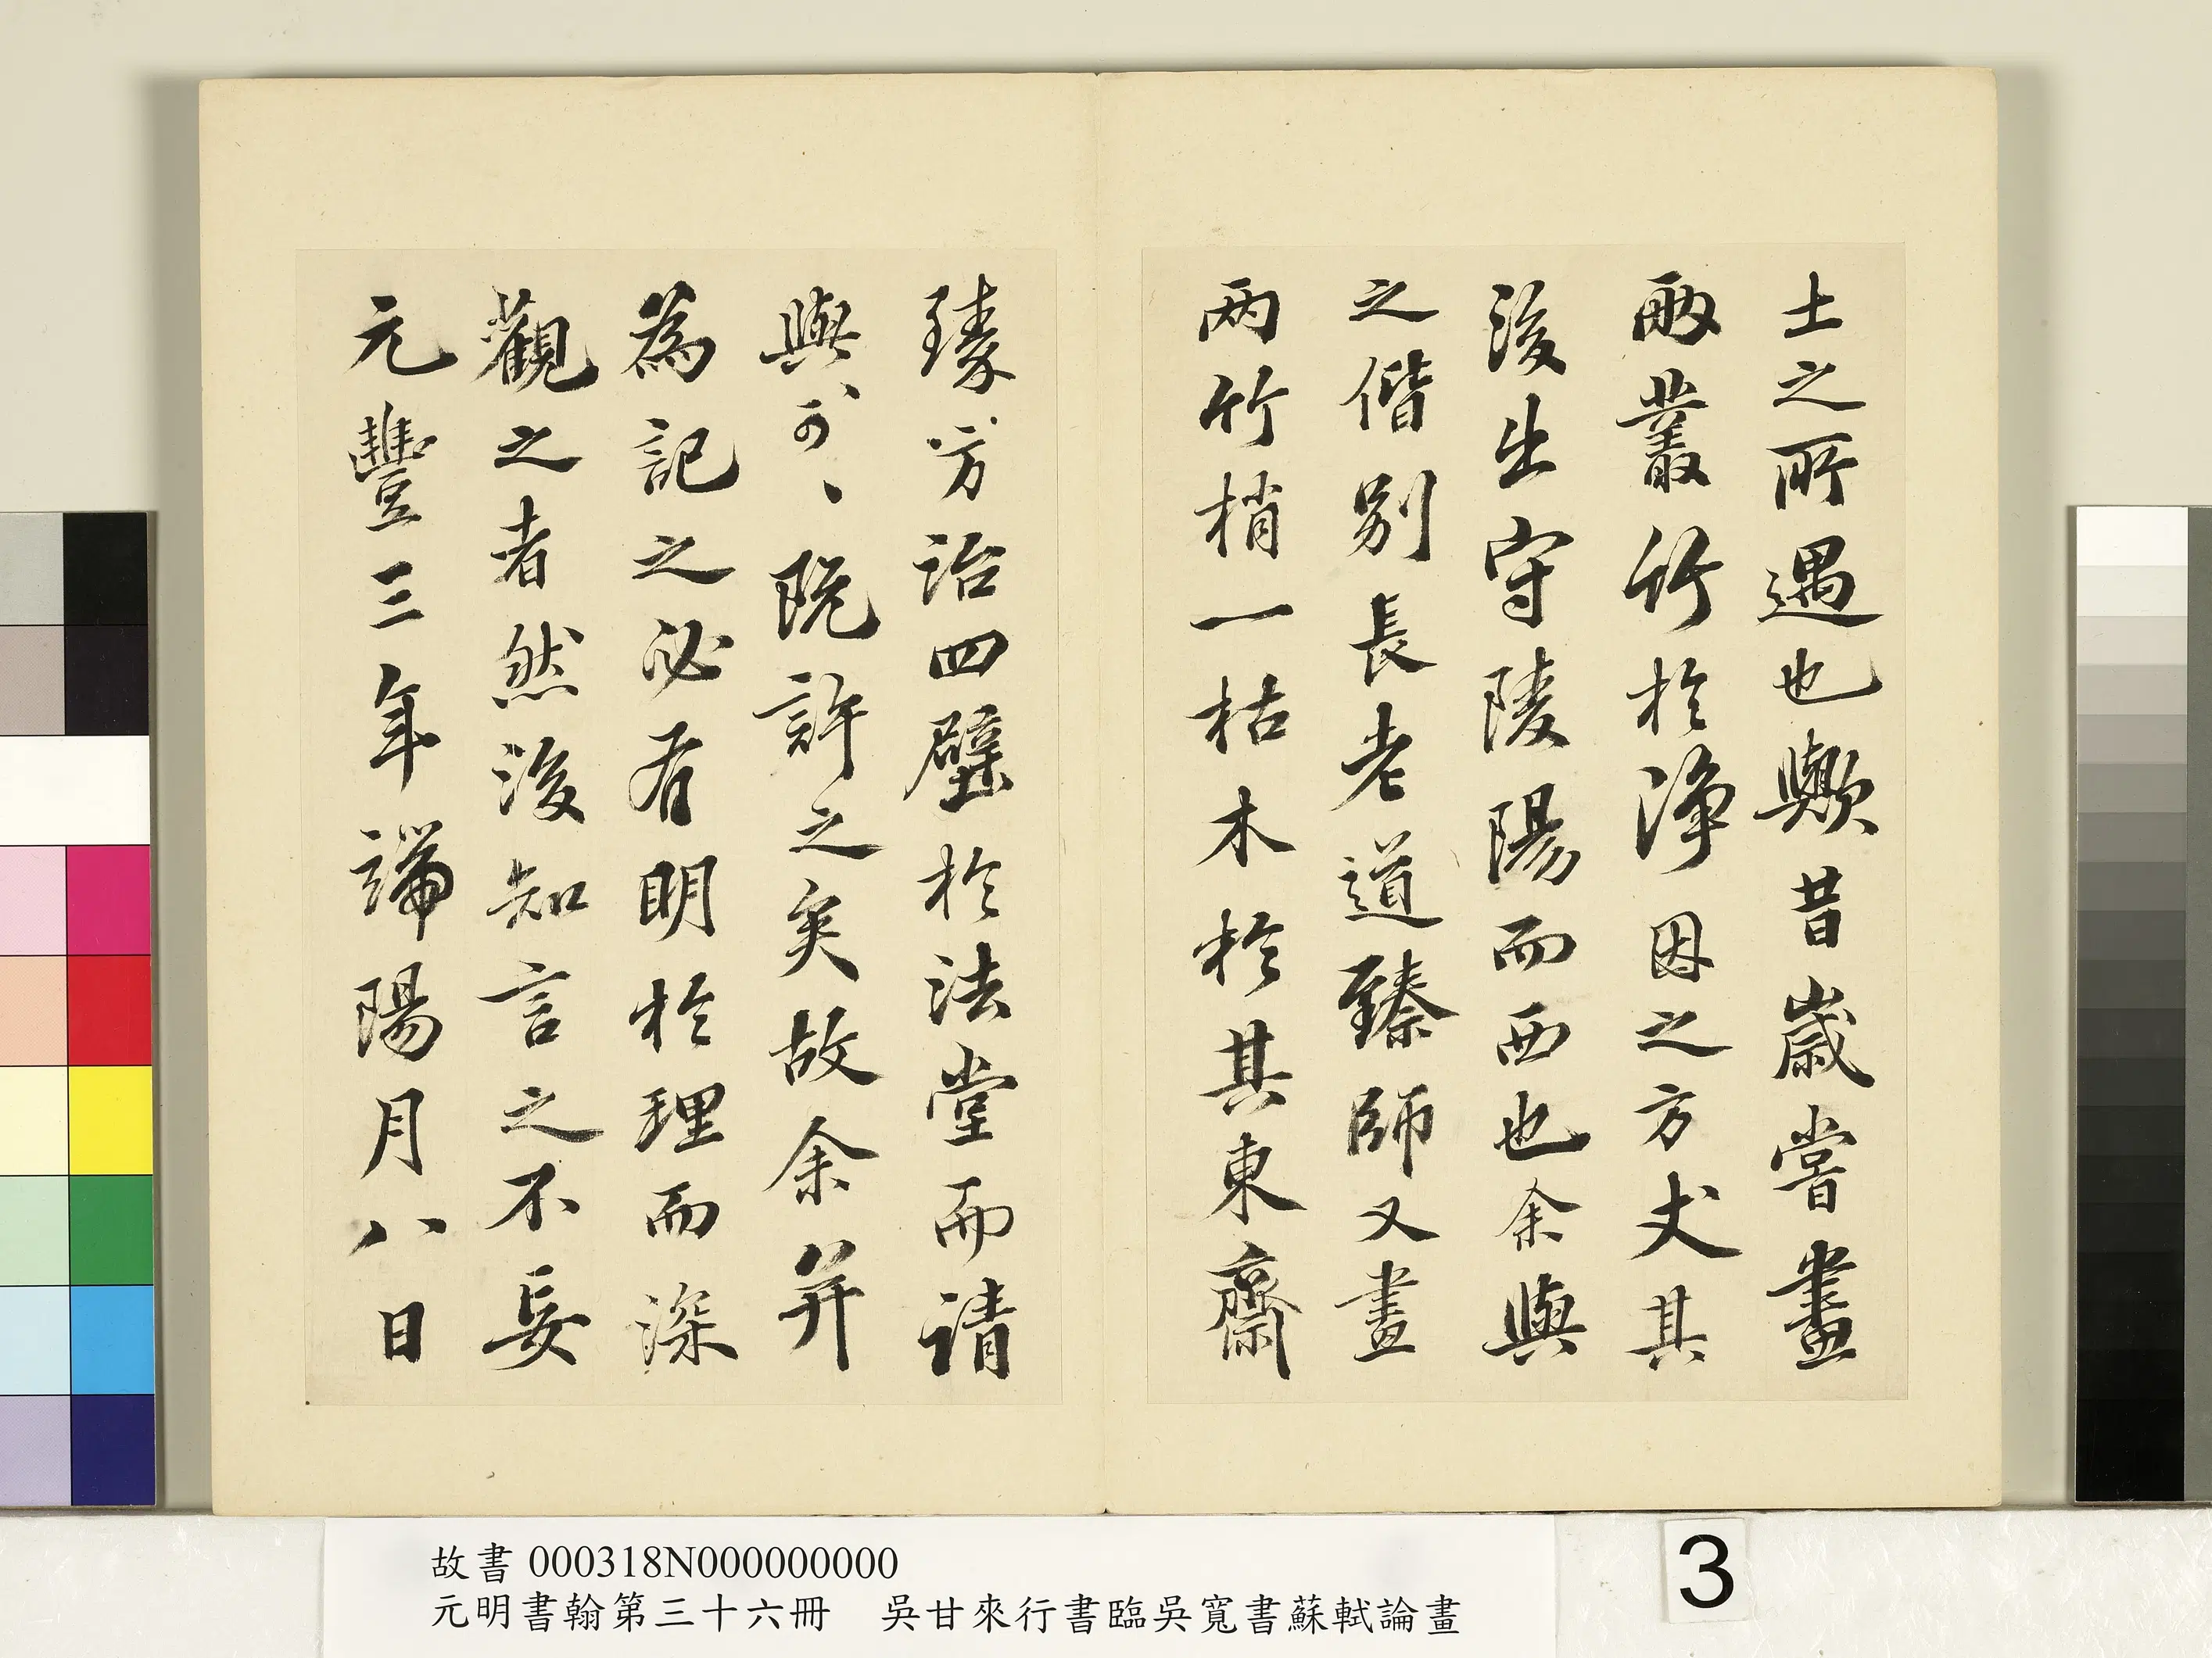 士之所遇也歟昔歲嘗畫
兩叢竹於淨因之方丈其
後出守陵陽而西也余與
之偕別長老道臻師又畫
两竹梢一枯木於其東齋
臻方治四壁於法堂而請
與、可、既許之矣故余并
為記之必有明於理而深
觀之者然後知言之不妄
元豐三年端陽月八日
故書 000318N000000000
元明書翰第三十六冊 吳甘來行書臨吳寬書蘇軾論畫
3